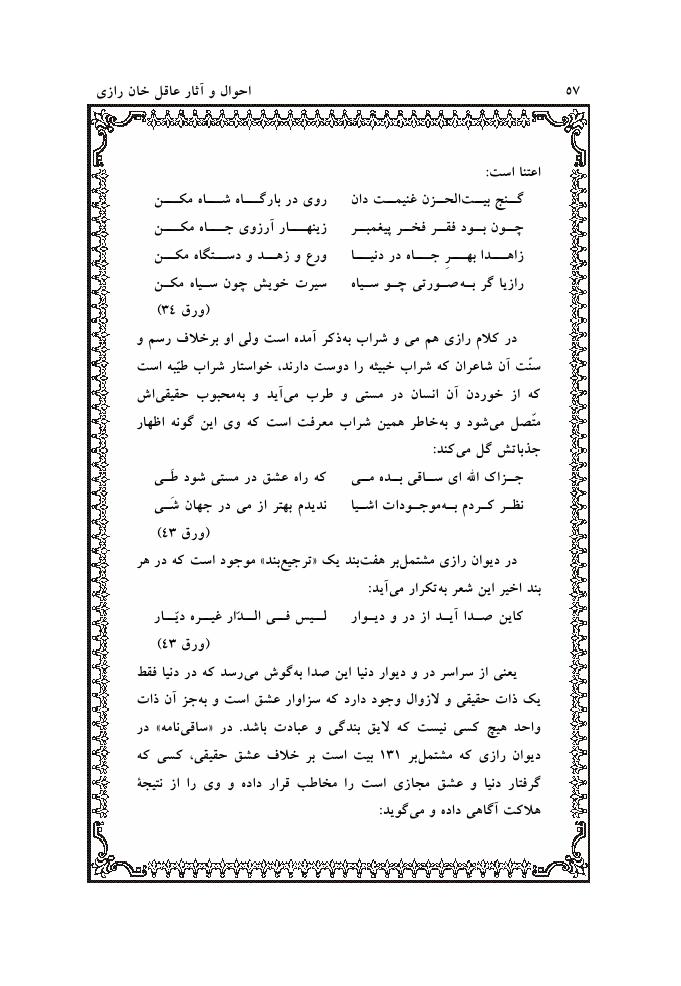 ۵۷ احوال و آثار عاقل خان رازی
اعتنا است:
گنج بیت‌الحزن غنیمت دان روی در بارگاه شاه مکن
چون بود فقر فخر پیغمبر زینهار آرزوی جاه مکن
زاهدا بهرِ جاه در دنیا ورع و زهد و دستگاه مکن
رازیا گر به‌صورتی چو سیاه سیرت خویش چون سیاه مکن
(ورق ۳۴)
در کلام رازی هم می و شراب به‌ذکر آمده است ولی او برخلاف رسم و
سنّت آن شاعران که شراب خبیثه را دوست دارند، خواستار شراب طیّبه است
که از خوردن آن انسان در مستی و طرب می‌آید و به‌محبوب حقیقی‌اش
متّصل می‌شود و به‌خاطر همین شراب معرفت است که وی این گونه اظهار
جذباتش گل می‌کند:
جزاک الله ای ساقی بده می که راه عشق در مستی شود طَی
نظر کردم به‌موجودات اشیا ندیدم بهتر از می در جهان شَی
(ورق ۴۳)
در دیوان رازی مشتمل‌بر هفت‌بند یک «ترجیع‌بند» موجود است که در هر
بند اخیر این شعر به‌تکرار می‌آید:
کاین صدا آید از در و دیوار لیس فی الدّار غیره دیّار
(ورق ۴۳)
یعنی از سراسر در و دیوار دنیا این صدا به‌گوش می‌رسد که در دنیا فقط
یک ذات حقیقی و لازوال وجود دارد که سزاوار عشق است و به‌جز آن ذات
واحد هیچ کسی نیست که لایق بندگی و عبادت باشد. در «ساقی‌نامه» در
دیوان رازی که مشتمل‌بر ۱۳۱ بیت است بر خلاف عشق حقیقی، کسی که
گرفتار دنیا و عشق مجازی است را مخاطب قرار داده و وی را از نتیجهٔ
هلاکت آگاهی داده و می‌گوید: